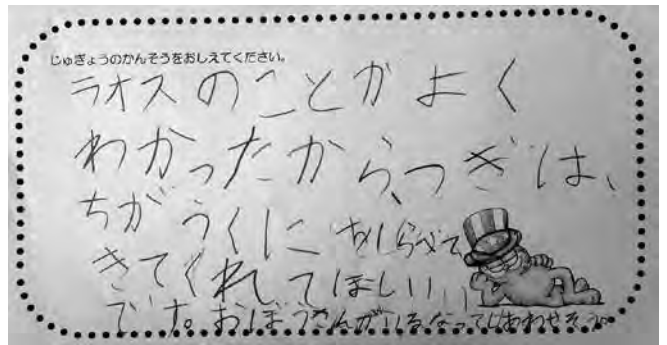 じゅぎょうのかんそうをおしえてください。
ラオスのことがよく
わかったから、つぎは、
ちがうくにをしらべて
きてくれてほしいい
です。おぼうさんがいるなってしあわせそう。